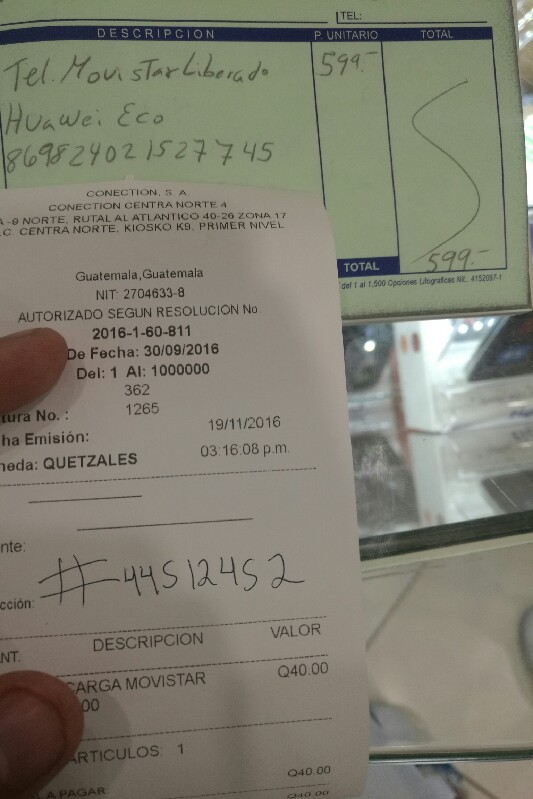 TEL:
DESCRIPCION P. UNITARIO TOTAL
Tel. Movistar Liberado 599.-
Huawei Eco
869824021527745
TOTAL 599.-
del 1 al 1,500 Opciones Litograficas Nit. 4152097-1
CONECTION, S. A.
CONECTION CENTRA NORTE 4
A -9 NORTE, RUTAL AL ATLANTICO 40-26 ZONA 17
.C. CENTRA NORTE, KIOSKO K9, PRIMER NIVEL
Guatemala,Guatemala
NIT: 2704633-8
AUTORIZADO SEGUN RESOLUCION No.
2016-1-60-811
De Fecha: 30/09/2016
Del: 1 Al: 1000000
362
tura No. : 1265
ha Emisión: 19/11/2016
03:16:08 p.m.
neda: QUETZALES
nte:
cción: #44512452
NT. DESCRIPCION VALOR
CARGA MOVISTAR Q40.00
00
ARTICULOS: 1
Q40.00
L A PAGAR Q40.00